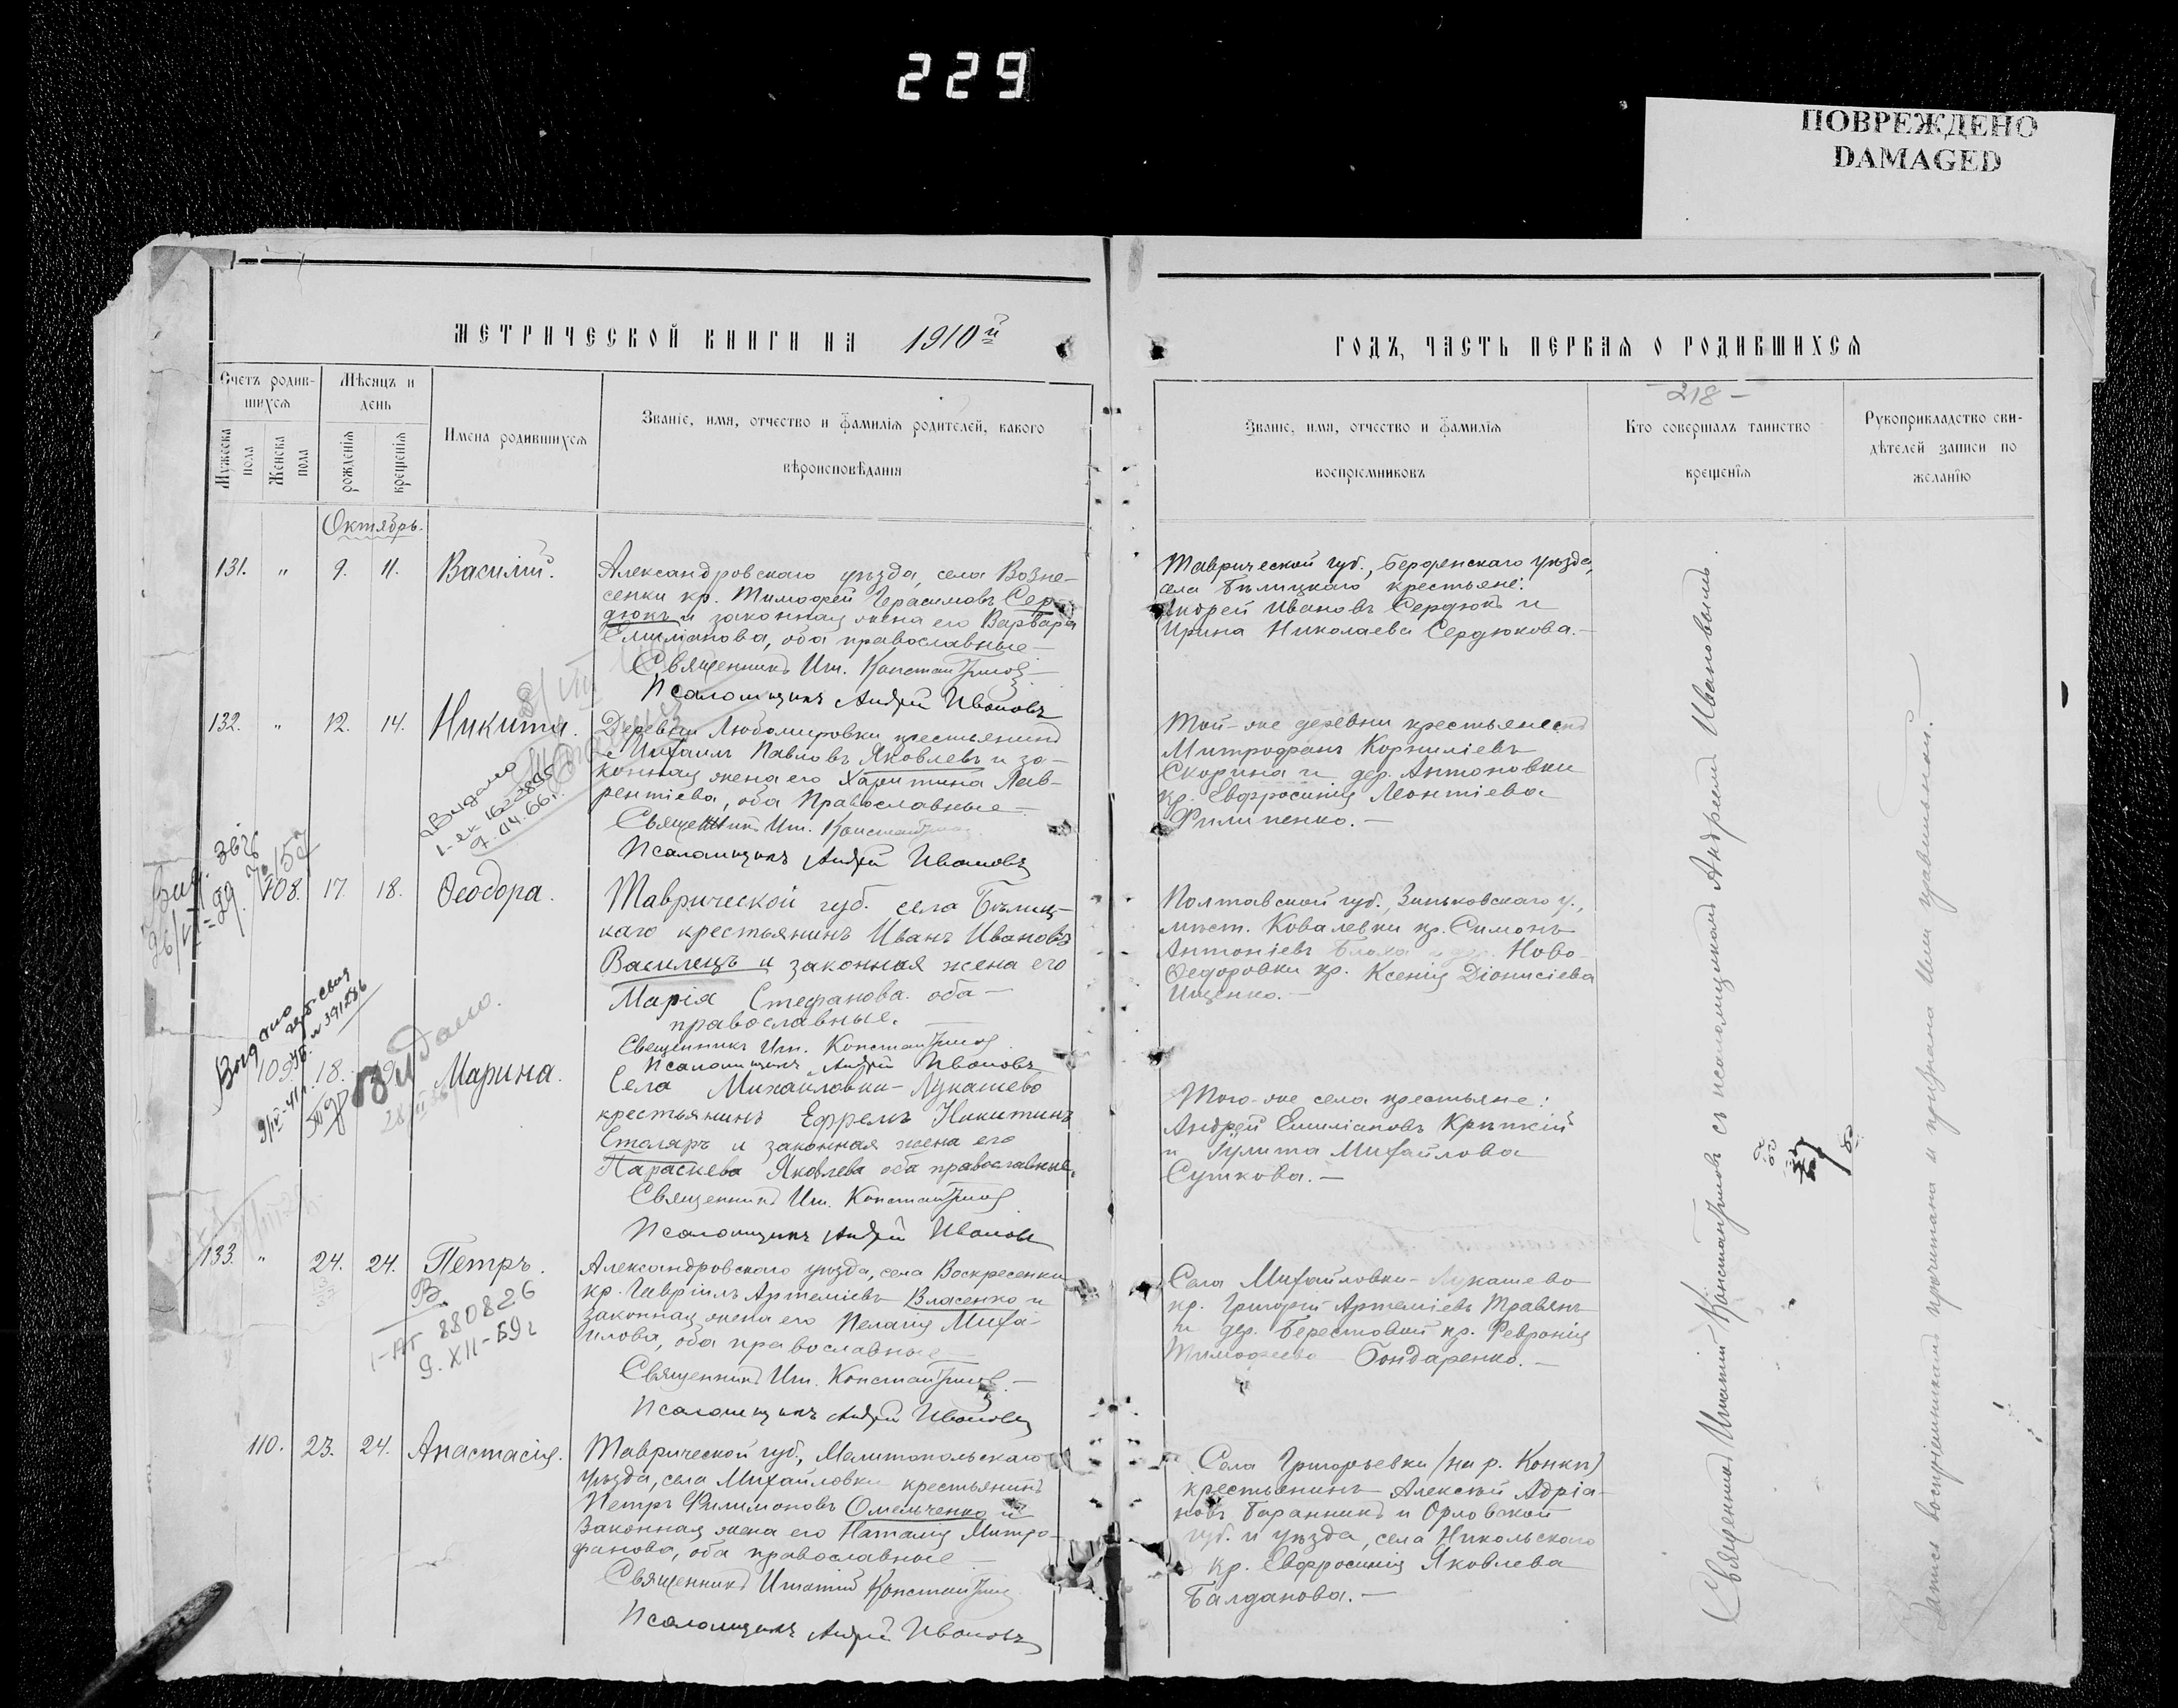 229
ПОВРЕЖДЕНО
DAMAGED
МЕТРИЧЕСКОЙ КНИГИ НА 1910й
Счетъ родившихся
Мужеска пола
Женска пола
Мѣсяцъ и день
рожденія
крещенія
Имена родившихся
Званіе, имя, отчество и фамилія родителей, какого
вѣроисповѣданія
Октябрь.
131. " 9. 11. Василій.
Александровскаго уѣзда, села Возне-
сенки кр. Тимофей Герасимовъ Сер-
дюкъ и законная жена его Варвара
Емиліанова, оба православные
Священникъ Иг. Константиновъ
Псаломщикъ Андрей Ивановъ
132. " 12. 14. Никита.
Деревни Любомировки крестьянинъ
Михаилъ Павловъ Яковлевъ и за-
конная жена его Харитина Лав-
рентіева, оба Православные
Священникъ Иг. Константиновъ
Псаломщикъ Андрей Ивановъ
Видано
7.04.66г.
108. 17. 18. Ѳеодора.
Таврической губ. села Бѣлиц-
каго крестьянинъ Иванъ Ивановъ
Василецъ и законная жена его
Марія Стефанова оба
православные.
Священникъ Иг. Константиновъ
Псаломщикъ Андрей Ивановъ
109. 18. Марина.
Видано
Села Михайловки-Лукашево
крестьянинъ Ефремъ Никитинъ
Столяръ и законная жена его
Параскева Яковлева оба православные.
Священникъ Иг. Константиновъ
Псаломщикъ Андрей Ивановъ
133. " 24. 24. Петръ.
В.
880826
9.XII-59г
Александровскаго уѣзда, села Воскресенки
кр. Гавріилъ Артеміевъ Власенко и
законная жена его Пелагія Миха-
илова, оба православные
Священникъ Иг. Константиновъ
Псаломщикъ Андрей Ивановъ
110. 23. 24. Анастасія.
Таврической губ., Мелитопольскаго
уѣзда, села Михайловки крестьянинъ
Петръ Филимоновъ Омельченко и
законная жена его Наталія Митро-
фанова, оба православные
Священникъ Игнатій Константиновъ
Псаломщикъ Андрей Ивановъ
ГОДЪ, ЧАСТЬ ПЕРВАЯ О РОДИВШИХСЯ
Званіе, имя, отчество и фамилія
воспріемниковъ
-218-
Кто совершалъ таинство
крещенія
Рукоприкладство сви-
дѣтелей записи по
желанію
Таврической губ., Бердянскаго уѣзда,
села Бѣлицкаго крестьяне:
Андрей Ивановъ Сердюкъ и
Ирина Николаева Сердюкова.-
Той-же деревни крестьянинъ
Митрофанъ Корниліевъ
Скорина и дер. Антоновки
кр. Евфросинія Леонтіева
Филипенко.-
Полтавской губ., Зиньковскаго у.,
мѣст. Ковалевки кр. Симонъ
Антоніевъ Блоха и дер. Ново-
Ѳедоровки кр. Ксенія Діонисіева
Ищенко.-
Того-же села крестьяне:
Андрей Емиліановъ Крѣпкій
и Іулита Михайлова
Сушкова.-
Села Михайловки-Лукашево
кр. Григорій Артеміевъ Травянъ
и дер. Берестовой кр. Февронія
Тимофеева Бондаренко.-
Села Григорьевки (на р. Конкѣ)
крестьянинъ Алексѣй Адріа-
новъ Баранникъ и Орловской
губ. и уѣзда, села Никольскаго
кр. Евфросинія Яковлева
Балданова.-
Священникъ Игнатій Константиновъ съ псаломщикомъ Андреемъ Ивановымъ.
Запись воспріемниками прочитана и признана ими правильной.-